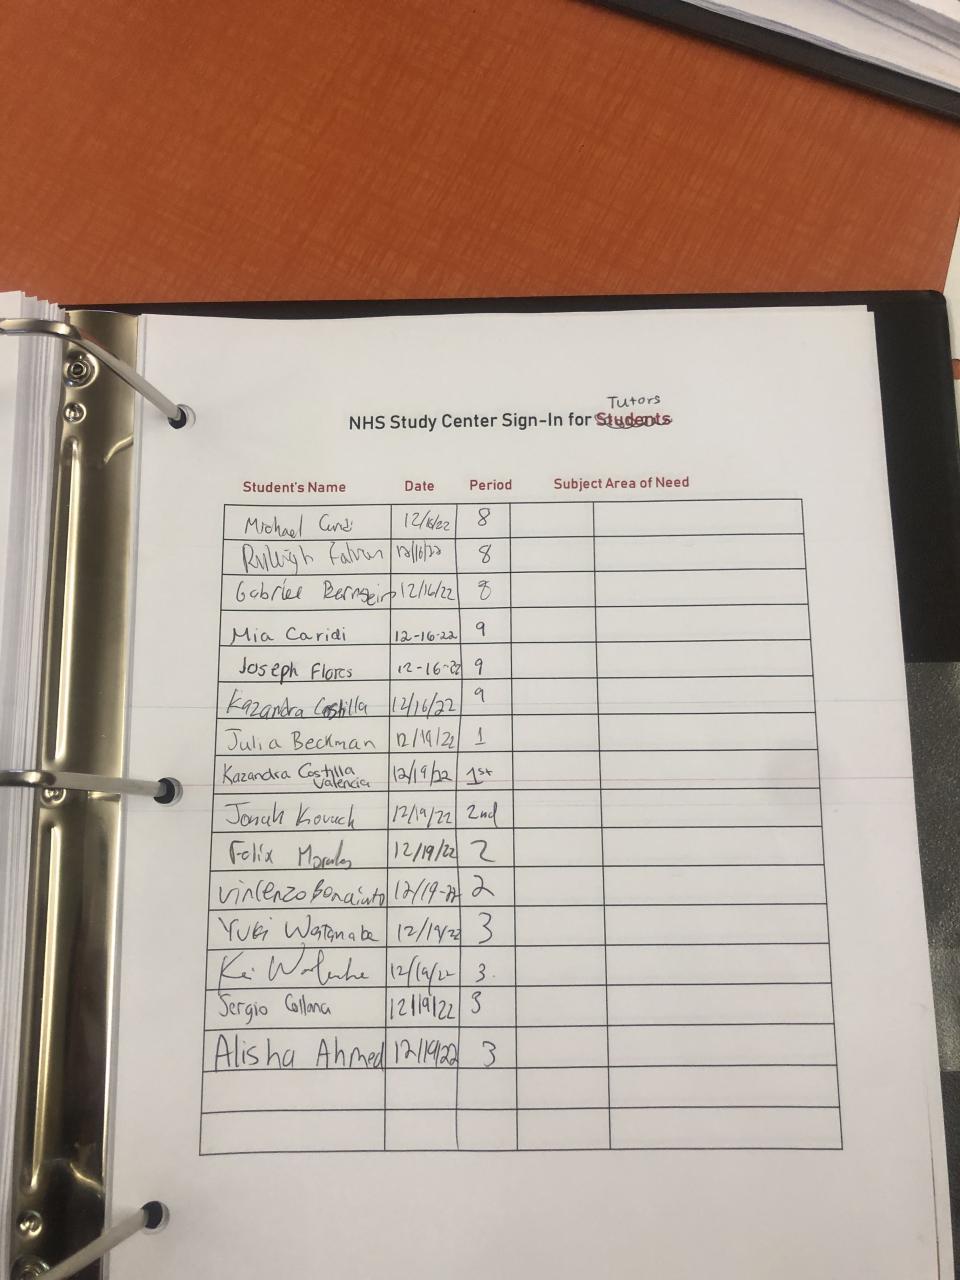 Tutors
NHS Study Center Sign-In for Students
Student's Name Date Period Subject Area of Need
Michael 12/16/22 8
Ryleigh 12/16/22 8
Gabriel Bernstein 12/16/22 8
Mia Caridi 12-16-22 9
Joseph Flores 12-16-22 9
Kazandra Costilla 12/16/22 9
Julia Beckman 12/19/22 1
Kazandra Costilla Valencia 12/19/22 1st
Jonah Kovack 12/19/22 2nd
Felix Morales 12/19/22 2
Vincenzo Bonaiuto 12/19-22 2
Yuki Watanabe 12/19/22 3
Kei 12/19/22 3.
Sergio Collana 12/19/22 3
Alisha Ahmed 12/19/22 3